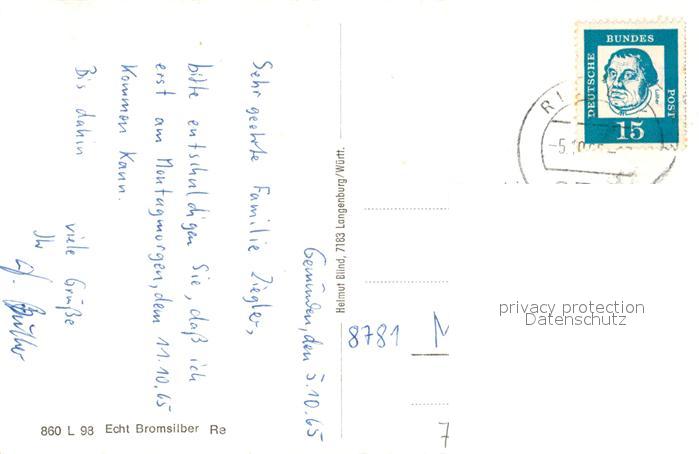 Gemünden, den 5.10.65
Sehr geehrte Familie Ziegler,
bitte entschuldigen Sie, daß ich
erst am Montagmorgen, dem 11.10.65
kommen kann.
Bis dahin
viele Grüße
Ihr
860 L 98 Echt Bromsilber Re
Helmut Blind, 7183 Langenburg/Württ.
DEUTSCHE
BUNDES
POST
15
-5.10.
8781 M
7
privacy protection
Datenschutz